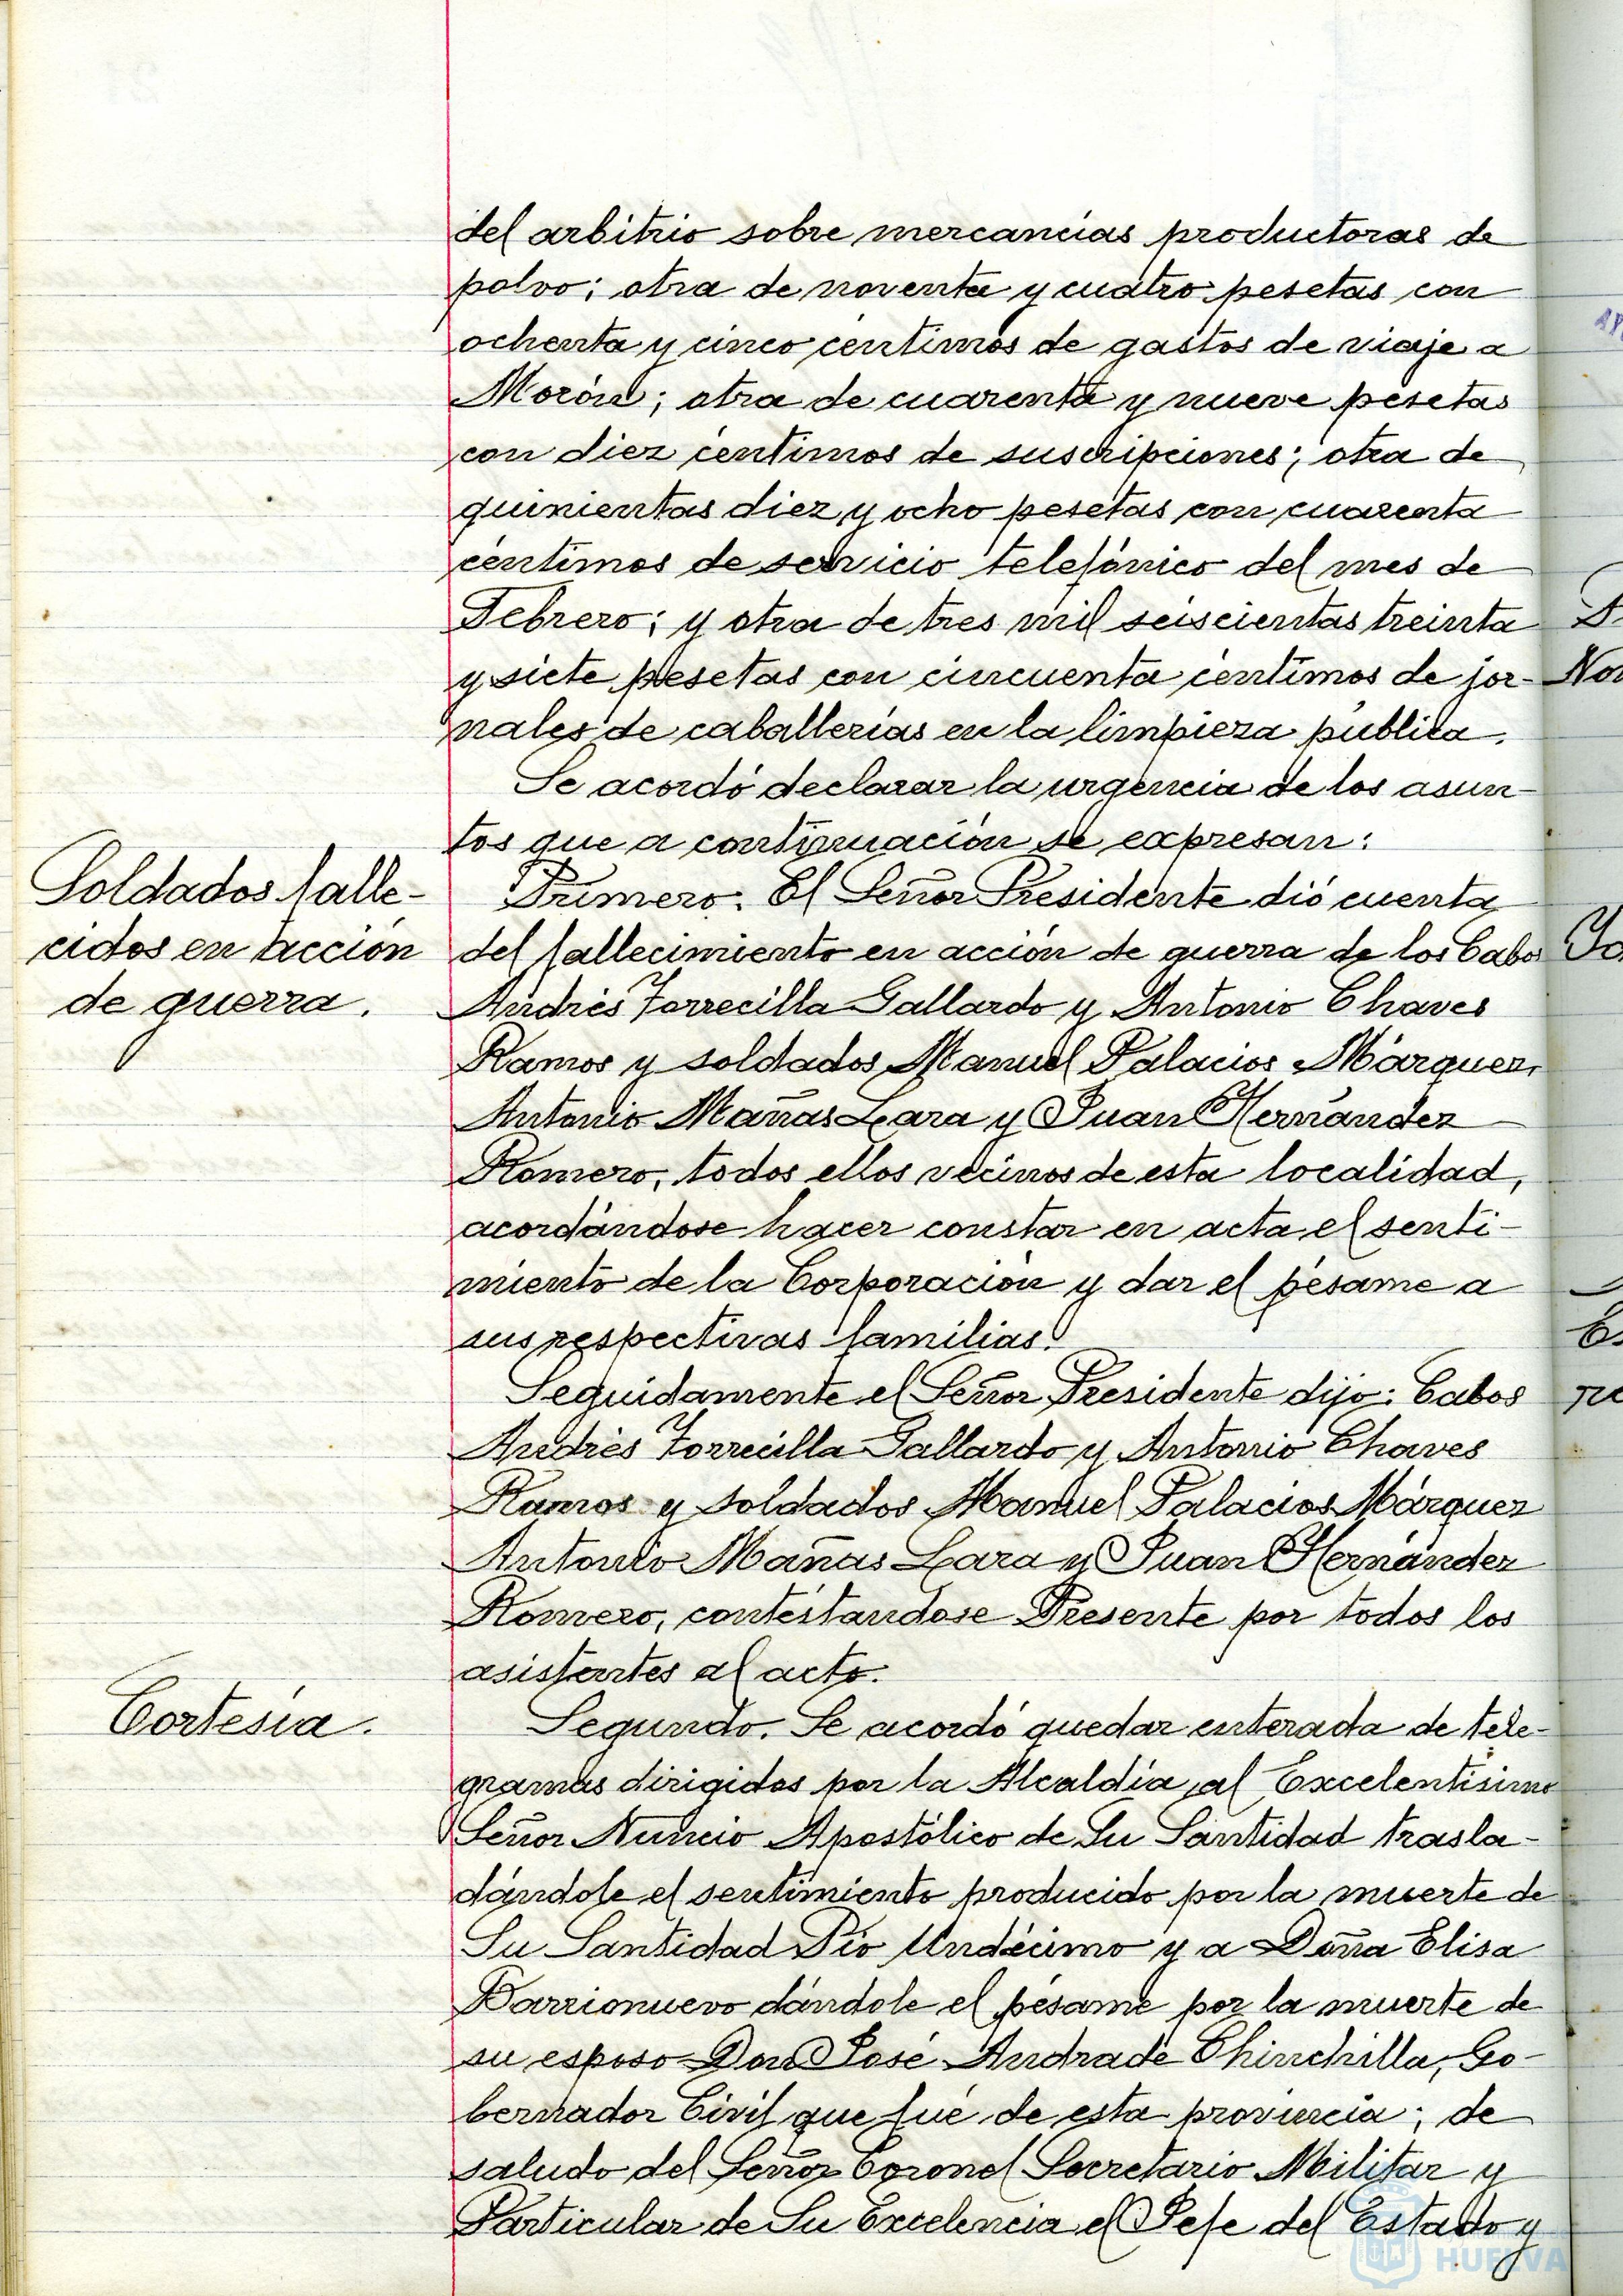 del arbitrio sobre mercancías productoras de
polvo; otra de noventa y cuatro pesetas con
ochenta y cinco céntimos de gastos de viaje a
Morón; otra de cuarenta y nueve pesetas
con diez céntimos de suscripciones; otra de
quinientas diez y ocho pesetas con cuarenta
céntimos de servicio telefónico del mes de
Febrero; y otra de tres mil seiscientas treinta
y siete pesetas con cincuenta céntimos de jor-
nales de caballerías en la limpieza pública.
Se acordó declarar la urgencia de los asun-
tos que a continuación se expresan:
Soldados falle-
cidos en acción
de guerra.
Primero. El Señor Presidente dió cuenta
del fallecimiento en acción de guerra de los Cabos
Andrés Torrecilla Gallardo y Antonio Chaves
Ramos y soldados Manuel Palacios Márquez,
Antonio Mañas Lara y Juan Hernández
Romero, todos ellos vecinos de esta localidad,
acordándose hacer constar en acta el senti-
miento de la Corporación y dar el pésame a
sus respectivas familias.
Seguidamente el Señor Presidente dijo: Cabos
Andrés Torrecilla Gallardo y Antonio Chaves
Ramos y soldados Manuel Palacios Márquez
Antonio Mañas Lara y Juan Hernández
Romero, contestándose Presente por todos los
asistentes al acto.
Cortesía.
Segundo. Se acordó quedar enterada de tele-
gramas dirigidos por la Alcaldía, al Excelentísimo
Señor Nuncio Apostólico de Su Santidad trasla-
dándole el sentimiento producido por la muerte de
Su Santidad Pío Undécimo y a Doña Elisa
Barrionuevo dándole el pésame por la muerte de
su esposo Don José Andrade Chinchilla, Go-
bernador Civil que fué de esta provincia; de
saludo del Señor Coronel Secretario Militar y
Particular de Su Excelencia el Jefe del Estado y
HUELVA